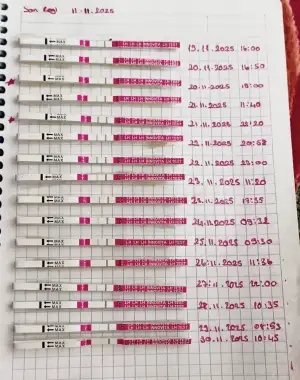 Son Reg 11.11.2025
19.11.2025 15:00
20.11.2025 16:50
20.11.2025 19:00
21.11.2025 11:40
21.11.2025 21:20
22.11.2025 20:58
22.11.2025 23:00
23.11.2025 11:20
23.11.2025 17:35
24.11.2025 09:32
25.11.2025 09:30
26.11.2025 11:36
27.11.2025 12:00
28.11.2025 10:35
29.11.2025 08:53
30.11.2025 10:45
MAX
LH LH LH INNOVITA LH TEST